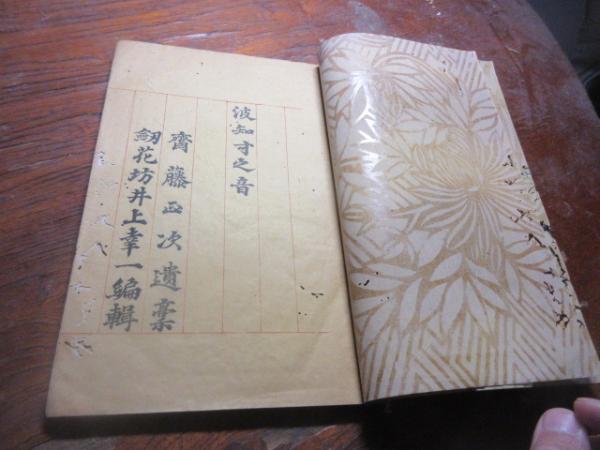 波知才之音
齋藤正次遺稾
劔花坊井上幸一編輯